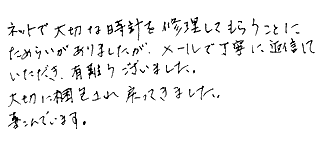 ネットで大切な時計を修理してもらうことに
ためらいがありましたが、メールで丁寧に返信して
いただき、有難うございました。
大切に梱包され戻ってきました。
喜んでいます。